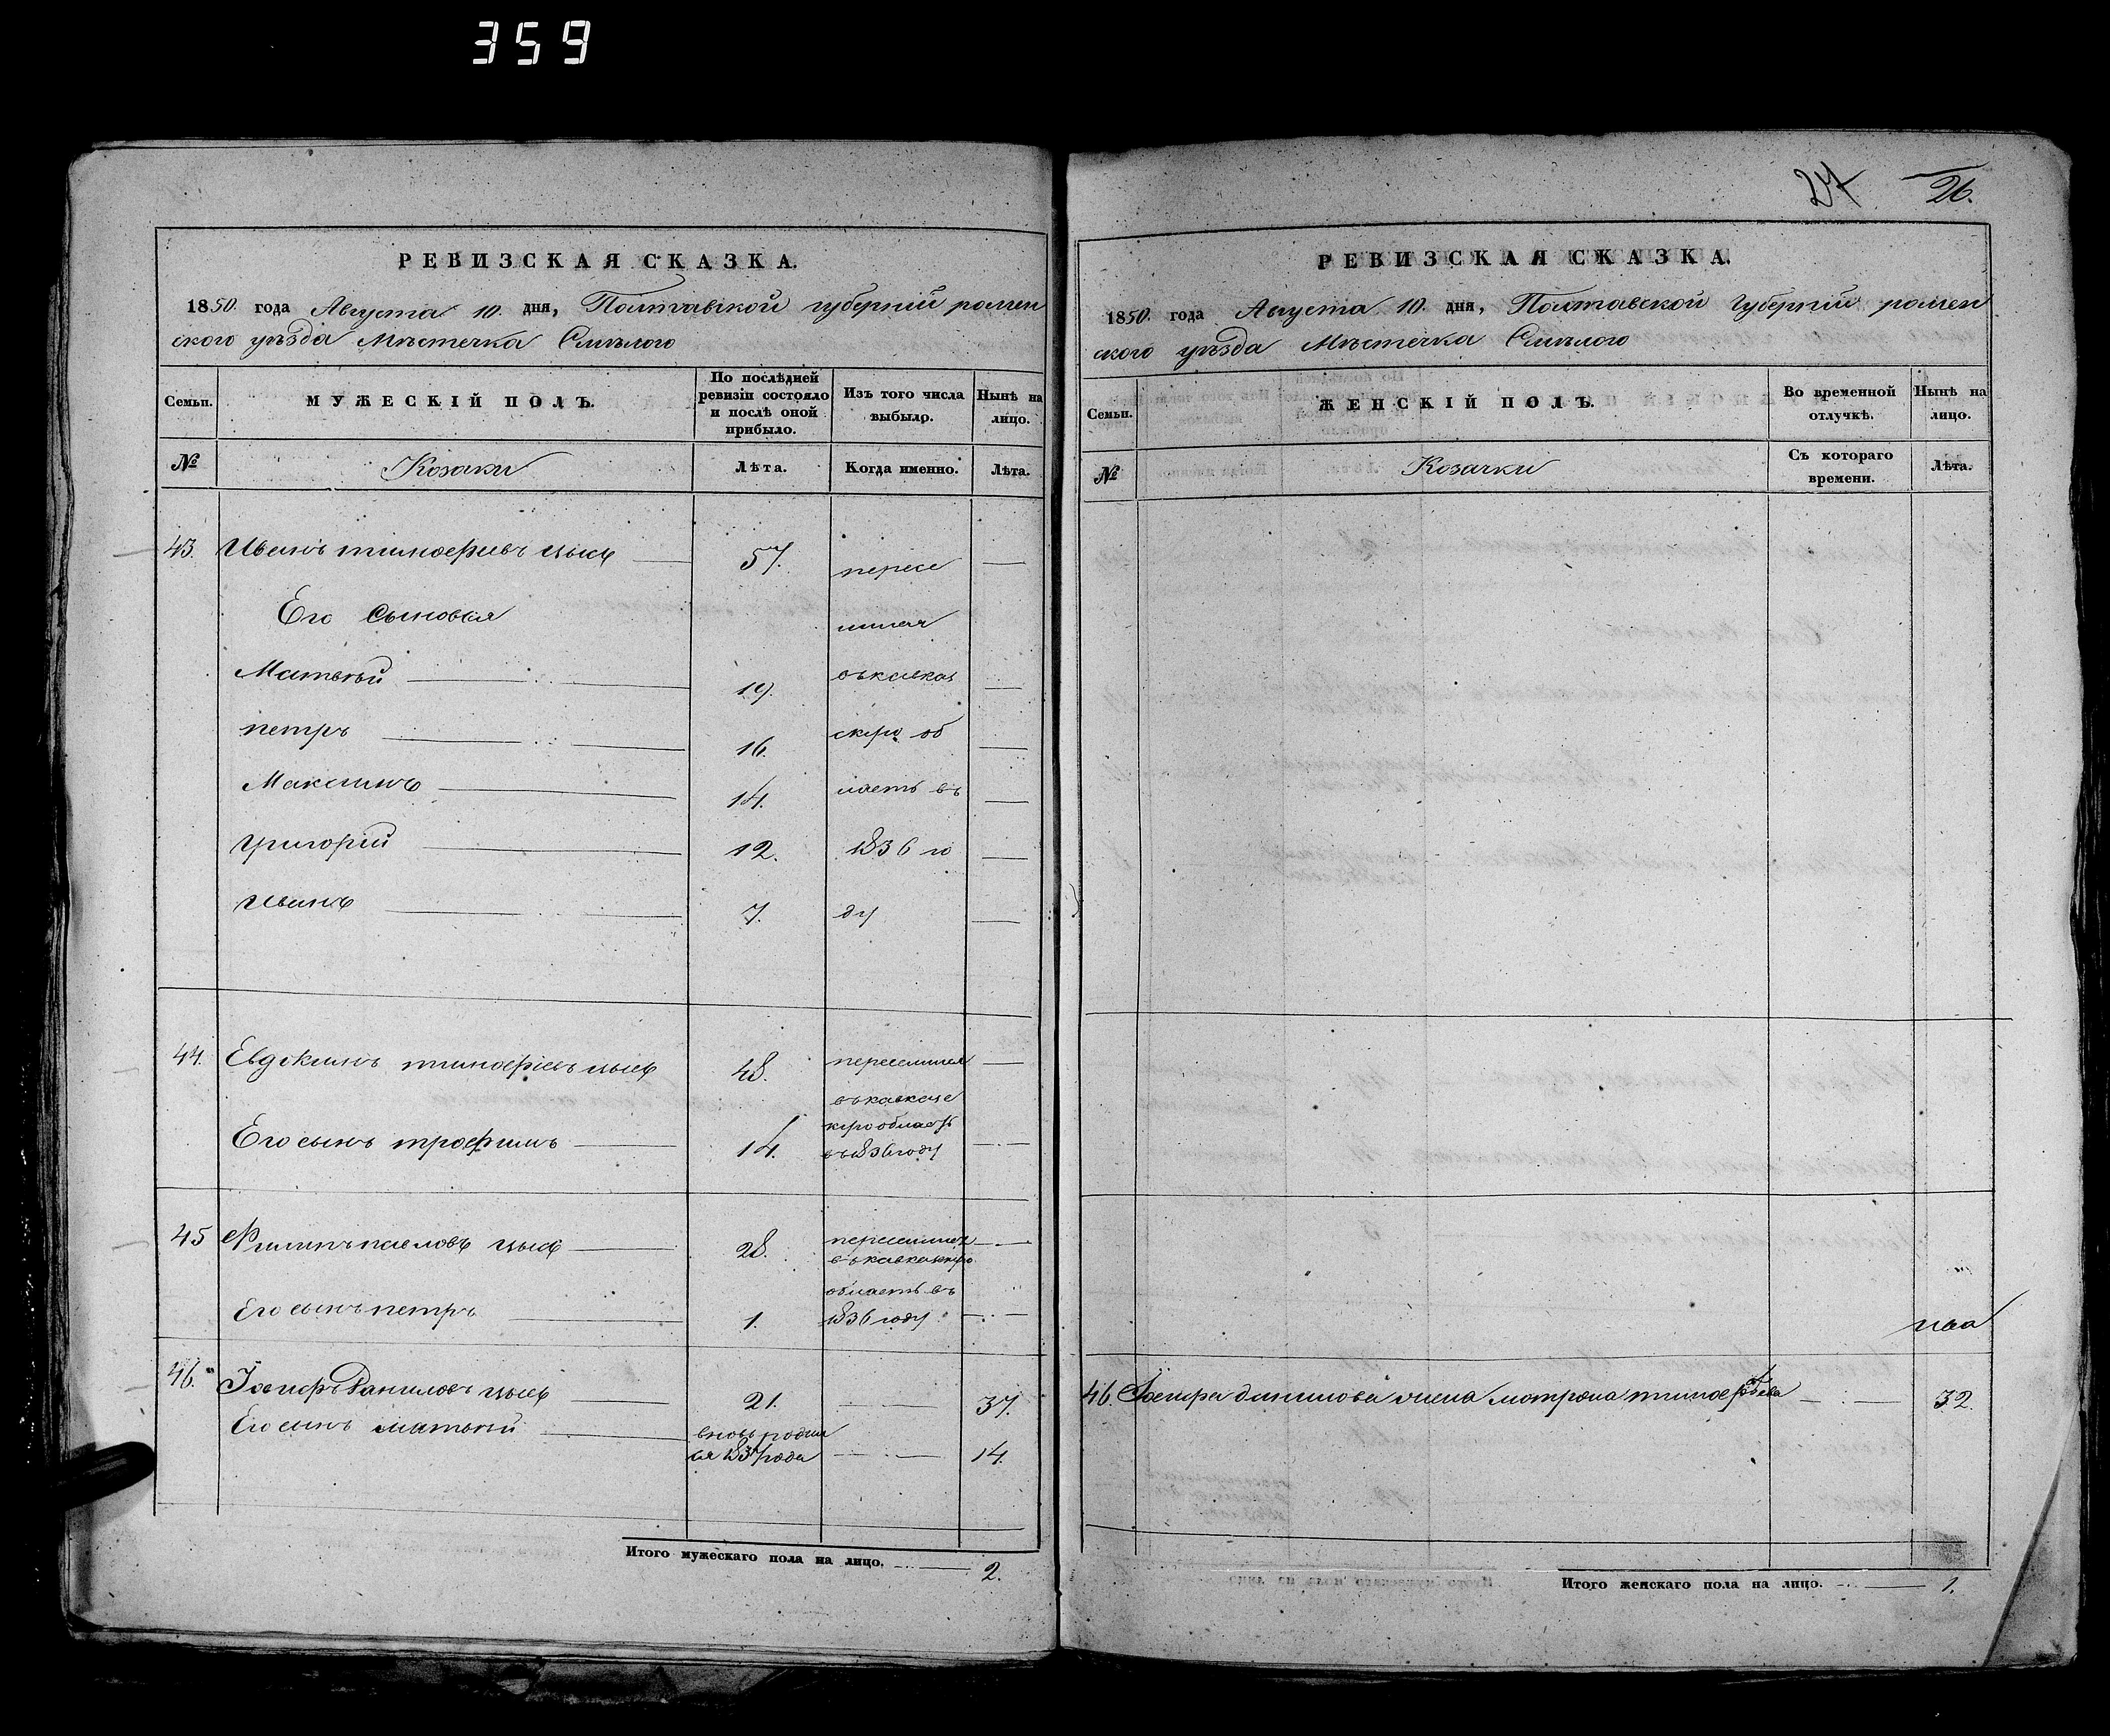 359
27
26.
РЕВИЗСКАЯ СКАЗКА.
1850. года Августа 10. дня, Полтавской губерніи ромен
ского уѣзда Мѣстечка Смѣлого
Семьи.
МУЖЕСКІЙ ПОЛЪ.
По послѣдней
ревизіи состояло
и послѣ оной
прибыло.
Изъ того числа
выбыло.
Нынѣ на
лицо.
№
Козаки
Лѣта.
Когда именно.
Лѣта.
43. Иванъ тимофеевъ 57. пересе
Его Сыновья лился
Матвѣй 19. въ кавказ
петръ 16. скую об
Максимъ 14. ласть въ
григорій 12. 1836 го
Иванъ 7. ду
44. Евдокимъ тимофіевъ 48. переселился
въ кавказс
Его сынъ трофимъ 14. кую область
въ 1836 году
45 Филипъ павловъ 28. переселился
въ кавказскую
область въ
Его сынъ петръ 1. 1836 году
46. Іосифъ Даниловъ 21. 37.
Его сынъ матвѣй вновь родил
ся 1837 года 14.
Итого мужескаго пола на лицо. 2.
РЕВИЗСКАЯ СКАЗКА.
1850. года Августа 10. дня, Полтавской Губерніи ромен
ского уѣзда Мѣстечка Смѣлого
Семьи.
ЖЕНСКІЙ ПОЛЪ.
Во временной
отлучкѣ.
Нынѣ на
лицо.
№
Козачки
Съ котораго
времени.
Лѣта.
46. Іосифа данилова жена мотрона тимофѣева 32.
Итого женскаго пола на лицо. 1.